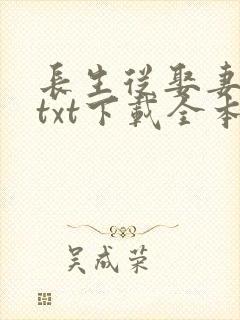 長生從娶妻
txt下載全本
吴成荣